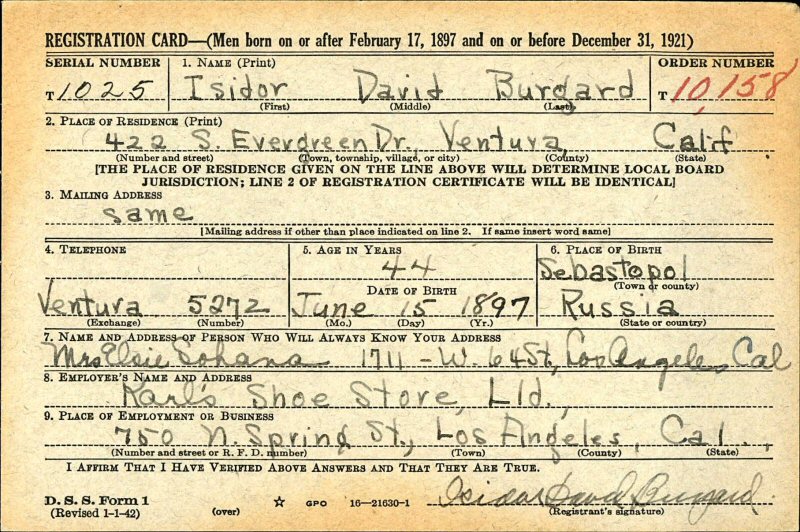 REGISTRATION CARD—(Men born on or after February 17, 1897 and on or before December 31, 1921)
SERIAL NUMBER 1. NAME (Print) ORDER NUMBER
T 1025 Isidor David Burgard T 10,158
(First) (Middle) (Last)
2. PLACE OF RESIDENCE (Print)
422 S. Evergreen Dr., Ventura, Calif
(Number and street) (Town, township, village, or city) (County) (State)
[THE PLACE OF RESIDENCE GIVEN ON THE LINE ABOVE WILL DETERMINE LOCAL BOARD
JURISDICTION; LINE 2 OF REGISTRATION CERTIFICATE WILL BE IDENTICAL]
3. MAILING ADDRESS
same
[Mailing address if other than place indicated on line 2. If same insert word same]
4. TELEPHONE 5. AGE IN YEARS 6. PLACE OF BIRTH
44 Sebastopol
DATE OF BIRTH (Town or county)
Ventura 5272 June 15 1897 Russia
(Exchange) (Number) (Mo.) (Day) (Yr.) (State or country)
7. NAME AND ADDRESS OF PERSON WHO WILL ALWAYS KNOW YOUR ADDRESS
Mrs Elsie 1711 - W. 64 St, Los Angeles, Cal
8. EMPLOYER'S NAME AND ADDRESS
Karl's Shoe Store, Ltd,
9. PLACE OF EMPLOYMENT OR BUSINESS
750 N. Spring St., Los Angeles, Cal.,
(Number and street or R. F. D. number) (Town) (County) (State)
I AFFIRM THAT I HAVE VERIFIED ABOVE ANSWERS AND THAT THEY ARE TRUE.
D. S. S. Form 1
(Revised 1-1-42) (over) ☆ GPO 16—21630-1 Isidor David Burgard
(Registrant's signature)